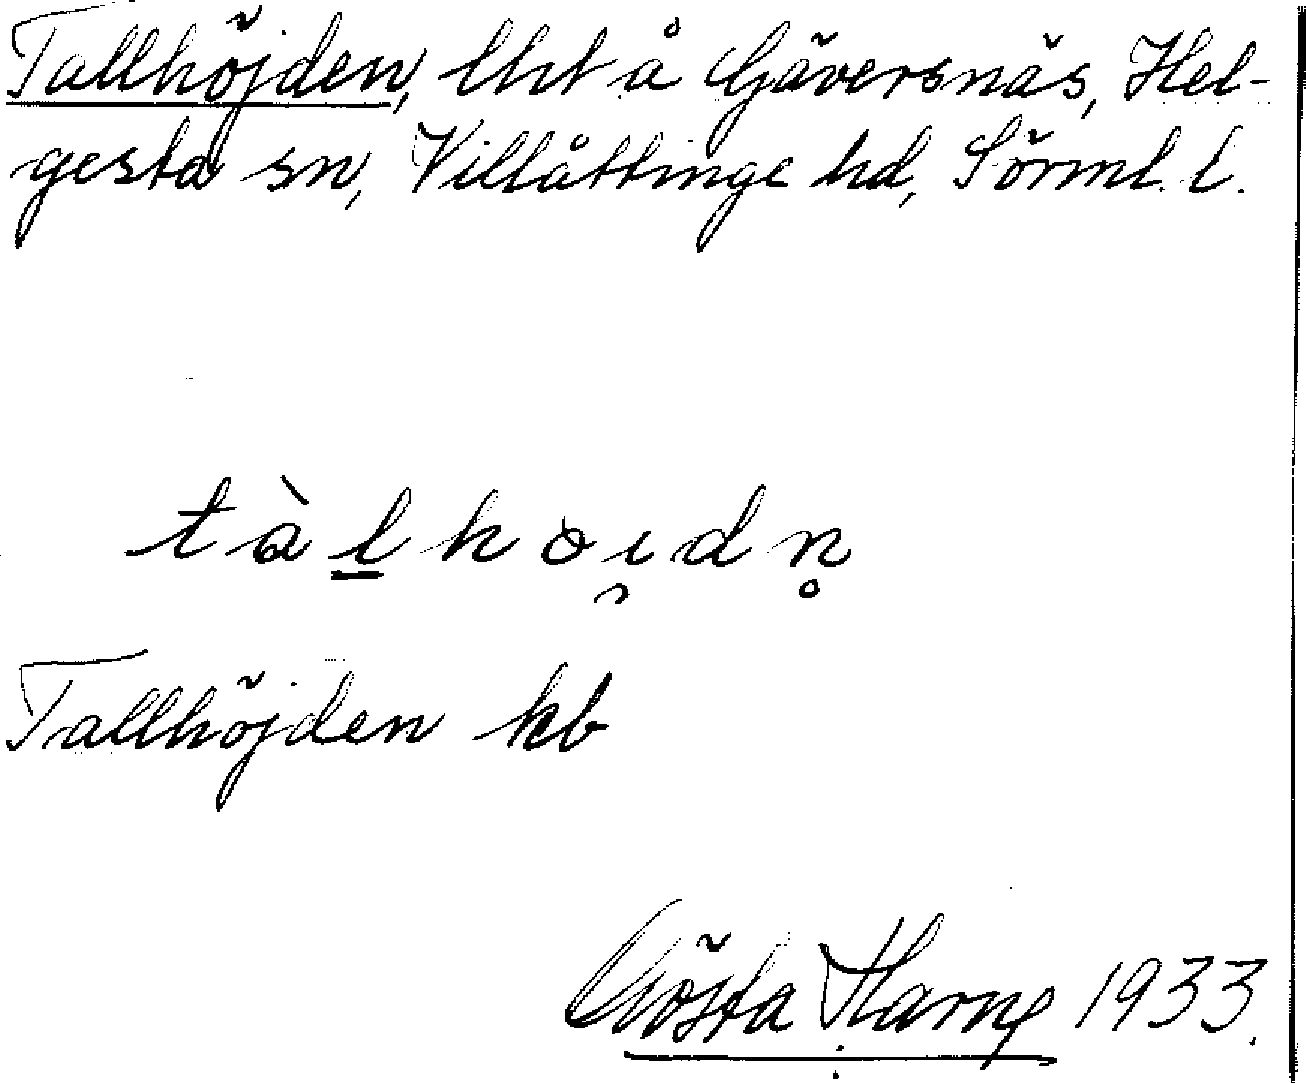 Tallhöjden, lht å Gäversnäs, Hel-
gesta sn, Villåttinge hd, Sörml. l.
tàlhöi̯dn̥
Tallhöjden kb
Gösta Harne 1933.